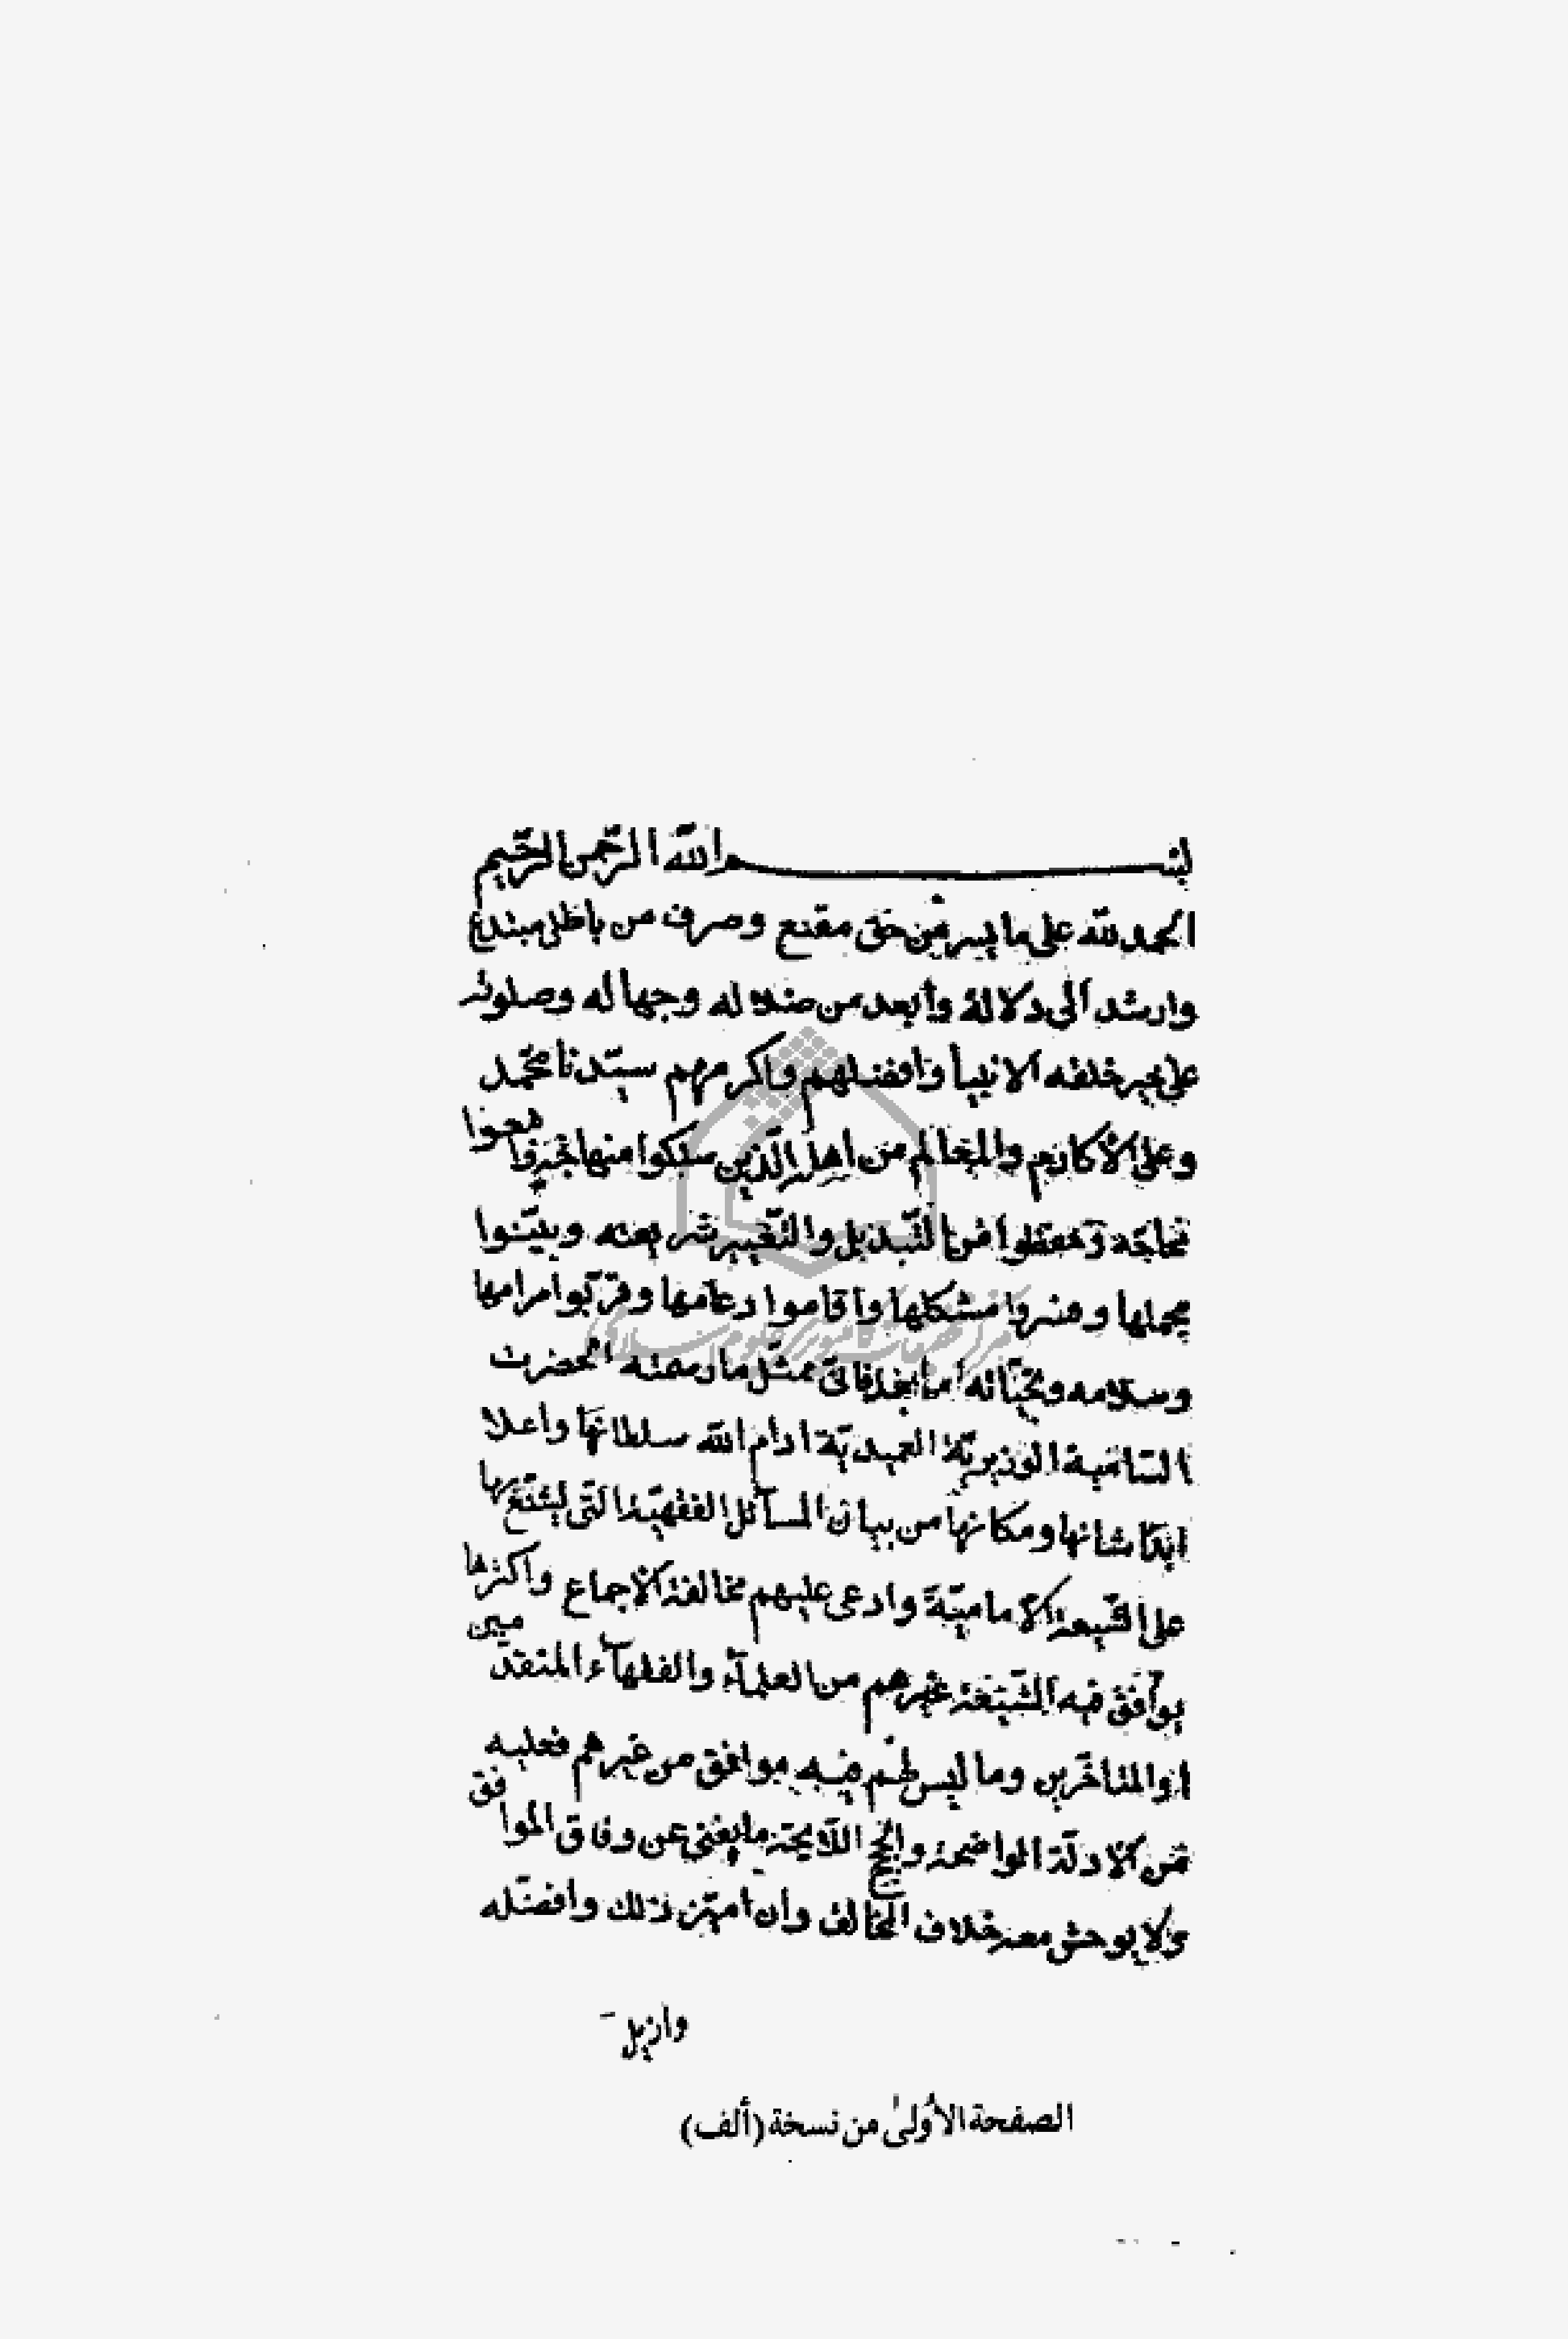 بسم الله الرحمن الرحيم
الحمد لله على ما يسر من حق مقنع وصرف من باطل مبتدع
وارشد الى دلالة وأبعد من ضلاله وجهاله وصلوته
على خير خلقه الانبيأ وافضلهم واكرمهم سيّدنا محمّد
وعلى الاكارم والمعالم من اهله الّذين سلكوا منهاجه وا
وحفظوا من التّبديل والتّغيير شريعته وبيّنوا
مجملها وفسروا مشكلها وأقاموا دعامها وقربوا مرامها
وسلامه وتحيّاته اما بعد فانّى ممتثل ما رسمته الحضرت
السّامية الوزيريّة العميديّة ادام الله سلطانها واعلا
ابدًا شانها ومكانها من بيان المسائل الفقهيّة التى يشنّع بها
على الشّيعة الاماميّة وادعى عليهم مخالفة الاجماع واكثرها
يوافق فيه الشّيعة غيرهم من العلمآء والفقهآء المتقدّمين
او المتاخّرين وما ليس لهم فيه موافق من غيرهم فعليه
من الادلّة الواضحة والحجج اللّايحة ما يغنى عن وفاق الموافق
ولا يوحش معه خلاف المخالف وان ابيّن ذلك وافصّله
وازيل
الصفحة الأولىٰ من نسخة (ألف)